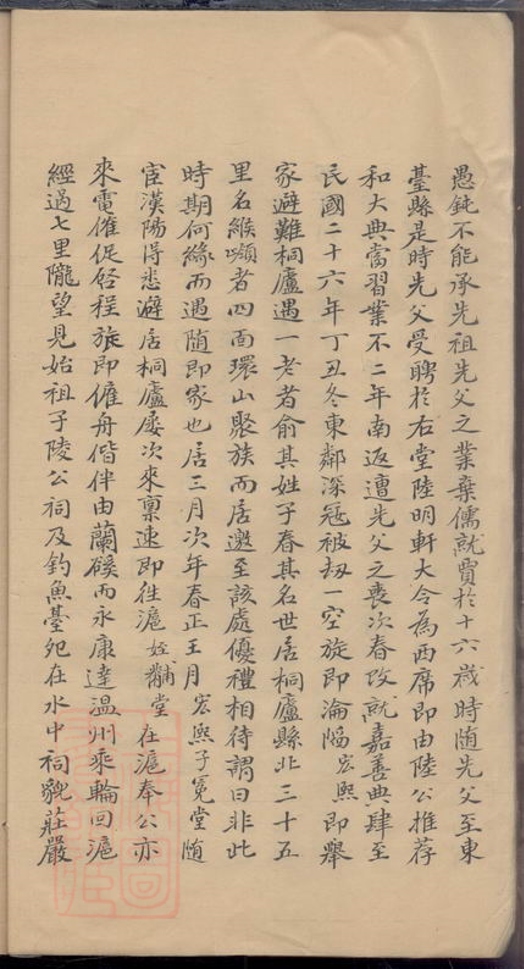 愚鈍不能承先祖先父之業棄儒就賈於十六歲時随先父至東
臺縣是時先父受聘於右堂陸明軒大令為西席即由陸公推荐
和大典當習業不二年南返遭先父之喪次春改就嘉善典肆至
民國二十六年丁丑冬東鄰深冦被刼一空旋即淪陷宏熙即舉
家避難桐廬遇一老者俞其姓子春其名世居桐廬縣北三十五
里名緱嶺者四面環山聚族而居邀至該處優禮相待謂曰非此
時期何緣而遇随即家也居三月次年春正王月宏熙子冕堂随
宦漢陽得悉避居桐廬屡次來稟速即往滬姪黼堂在滬奉公亦
來電催促啓程旅即僱舟偕伴由蘭谿而永康達温州乘輪回滬
經過七里隴望見始祖子陵公祠及釣魚臺宛在水中祠貌莊嚴